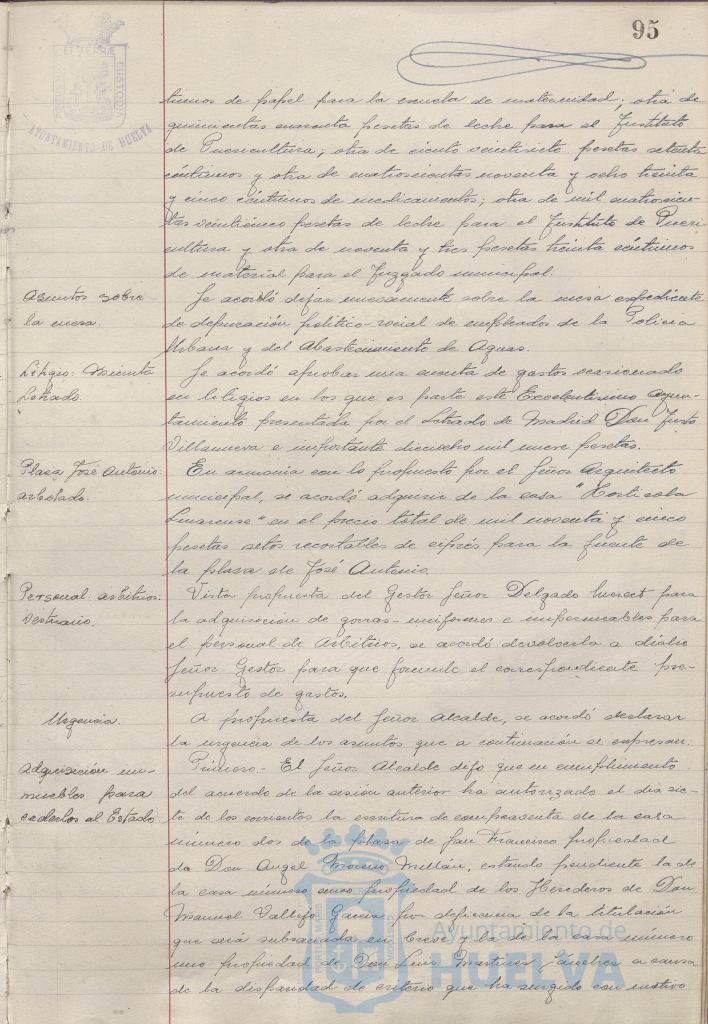 95
AYUNTAMIENTO DE HUELVA
timos de papel para la escuela de maternidad; otra de
quinientas cuarenta pesetas de leche para el Instituto
de Puericultura; otra de ciento veintisiete pesetas setenta
céntimos y otra de cuatrocientas noventa y ocho treinta
y cinco céntimos de medicamentos; otra de mil cuatrocien-
tas veinticinco pesetas de leche para el Instituto de Pueri
cultura y otra de noventa y tres pesetas treinta céntimos
de material para el Juzgado municipal.
Asuntos sobre
la mesa.
Se acordó dejar nuevamente sobre la mesa expediente
de depuración político-social de empleados de la Policia
Urbana y del Abastecimiento de Aguas.
Litigio: Minuta
Letrado.
Se acordó aprobar una cuenta de gastos ocasionado
en litigios en los que es parte este Excelentísimo Ayun-
tamiento presentada por el Letrado de Madrid Don Justo
Villanueva e importante dieciocho mil nueve pesetas.
Plaza José Antonio:
arbolado.
En armonia con lo propuesto por el Señor Arquitecto
municipal, se acordó adquirir de la casa "Horticola
Linarense" en el precio total de mil noventa y cinco
pesetas setos recortables de ciprés para la fuente de
la plaza de José Antonio.
Personal arbitrios.
Vestuario.
Vista propuesta del Gestor Señor Delgado para
la adquisición de gorras-uniformes e impermeables para
el personal de Arbitrios, se acordó devolverla a dicho
Señor Gestor para que formule el correspondiente pre-
supuesto de gastos.
Urgencia
A propuesta del Señor Alcalde, se acordó declarar
la urgencia de los asuntos que a continuación se expresan:
Adquisición in-
muebles para
cederlos al Estado
Primero.- El Señor Alcalde dijo que en cumplimiento
del acuerdo de la sesión anterior ha autorizado el dia sie-
te de los corrientes la escritura de compraventa de la casa
número dos de la plaza de San Francisco propiedad
de Don Angel Moreno Millán, estando pendiente la de
la casa número cinco propiedad de los Herederos de Don
Manuel Vallejo Garcia por deficiencia de la titulación
que será subsanada en breve y la de la casa número
uno propiedad de Don Luis Martinez Sánchez a causa
de la disparidad de criterio que ha surgido con motivo
Ayuntamiento de
HUELVA